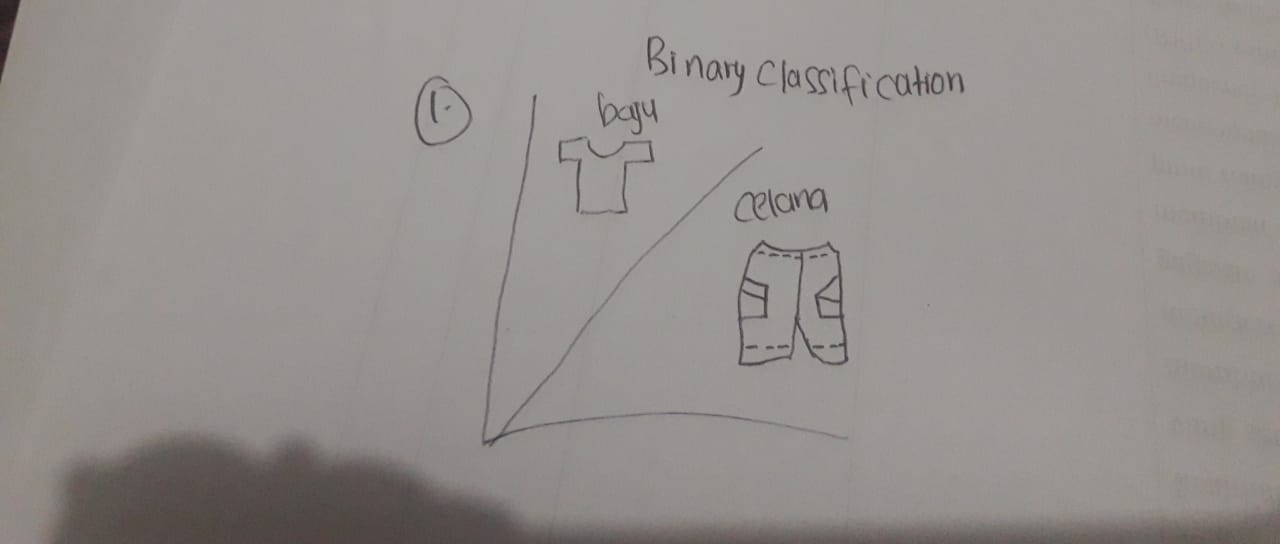 Binary Classification
1.
baju
celana